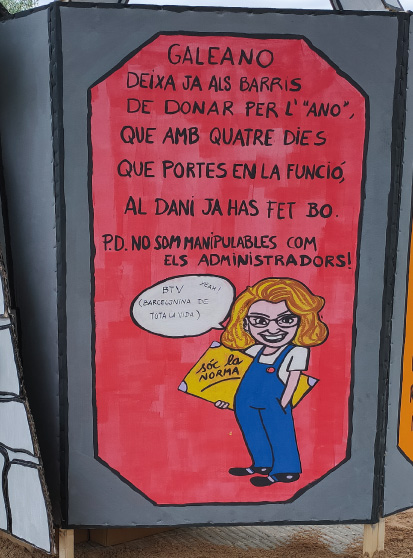 GALEANO
DEIXA JA ALS BARRIS
DE DONAR PER L' "ANO",
QUE AMB QUATRE DIES
QUE PORTES EN LA FUNCIÓ,
AL DANI JA HAS FET BO.
P.D. NO SOM MANIPULABLES COM
ELS ADMINISTRADORS!
BTV YEAH!
(BARCELONINA DE
TOTA LA VIDA)
sóc la
NORMA